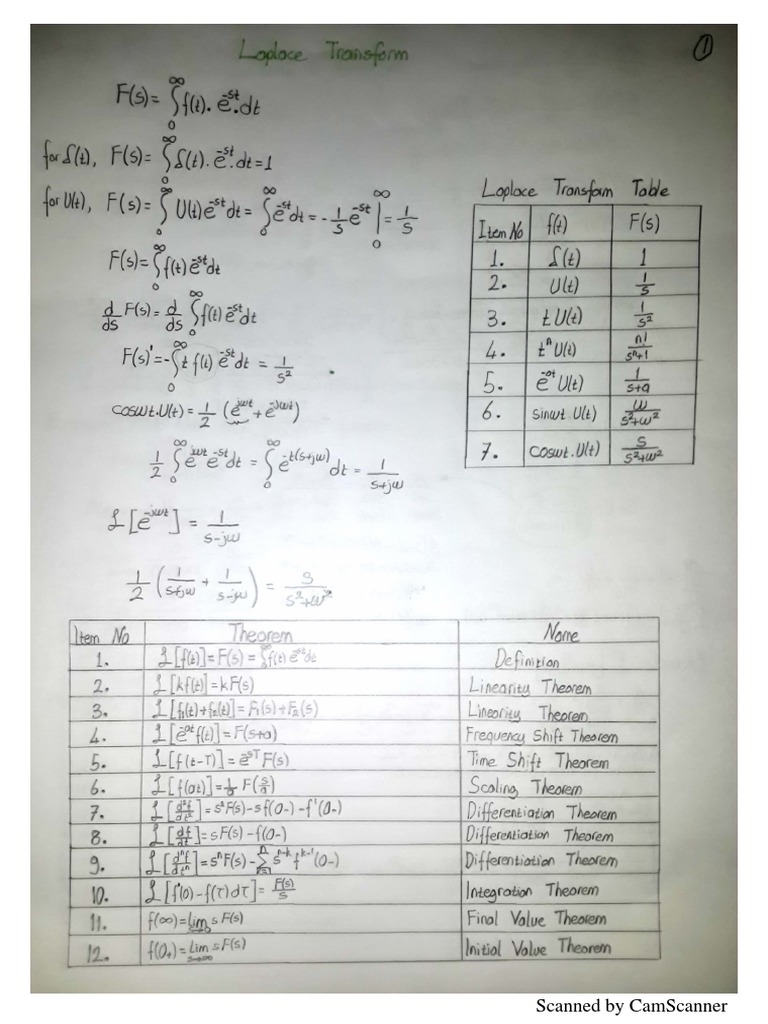 Laplace Transform
1
F(s) = ∫₀^∞ f(t). e^-st. dt
for δ(t), F(s) = ∫₀^∞ δ(t). e^-st. dt = 1
for U(t), F(s) = ∫₀^∞ U(t) e^-st dt = ∫₀^∞ e^-st dt = -1/s e^-st |₀^∞ = 1/s
F(s) = ∫₀^∞ f(t) e^-st dt
d/ds F(s) = d/ds ∫₀^∞ f(t) e^-st dt
F(s)' = -∫₀^∞ t f(t) e^-st dt = 1/s²
coswt.U(t) = 1/2 (e^jwt + e^-jwt)
1/2 ∫₀^∞ e^jwt e^-st dt = ∫₀^∞ e^-t(s+jw) dt = 1/(s+jw)
ℒ[e^-jwt] = 1/(s-jw)
1/2 (1/(s+jw) + 1/(s-jw)) = s/(s²+w²)
Laplace Transform Table
Item No f(t) F(s)
1. δ(t) 1
2. U(t) 1/s
3. tU(t) 1/s²
4. t^n U(t) n!/s^n+1
5. e^-at U(t) 1/(s+a)
6. sinwt U(t) w/(s²+w²)
7. coswt.U(t) s/(s²+w²)
Item No Theorem Name
1. ℒ[f(t)] = F(s) = ∫₀^∞ f(t) e^-st dt Definition
2. ℒ[kf(t)] = kF(s) Linearity Theorem
3. ℒ[f₁(t)+f₂(t)] = F₁(s)+F₂(s) Linearity Theorem
4. ℒ[e^-at f(t)] = F(s+a) Frequency Shift Theorem
5. ℒ[f(t-T)] = e^-sT F(s) Time Shift Theorem
6. ℒ[f(at)] = 1/a F(s/a) Scaling Theorem
7. ℒ[d²f/dt²] = s²F(s)-sf(0-)-f'(0-) Differentiation Theorem
8. ℒ[df/dt] = sF(s)-f(0-) Differentiation Theorem
9. ℒ[d^n f/dt^n] = s^n F(s)-∑ s^n-k f^k-1(0-) Differentiation Theorem
10. F(s)/s Integration Theorem
11. f(∞) = lim sF(s) Final Value Theorem
12. f(0+) = Lim s→∞ sF(s) Initial Value Theorem
Scanned by CamScanner